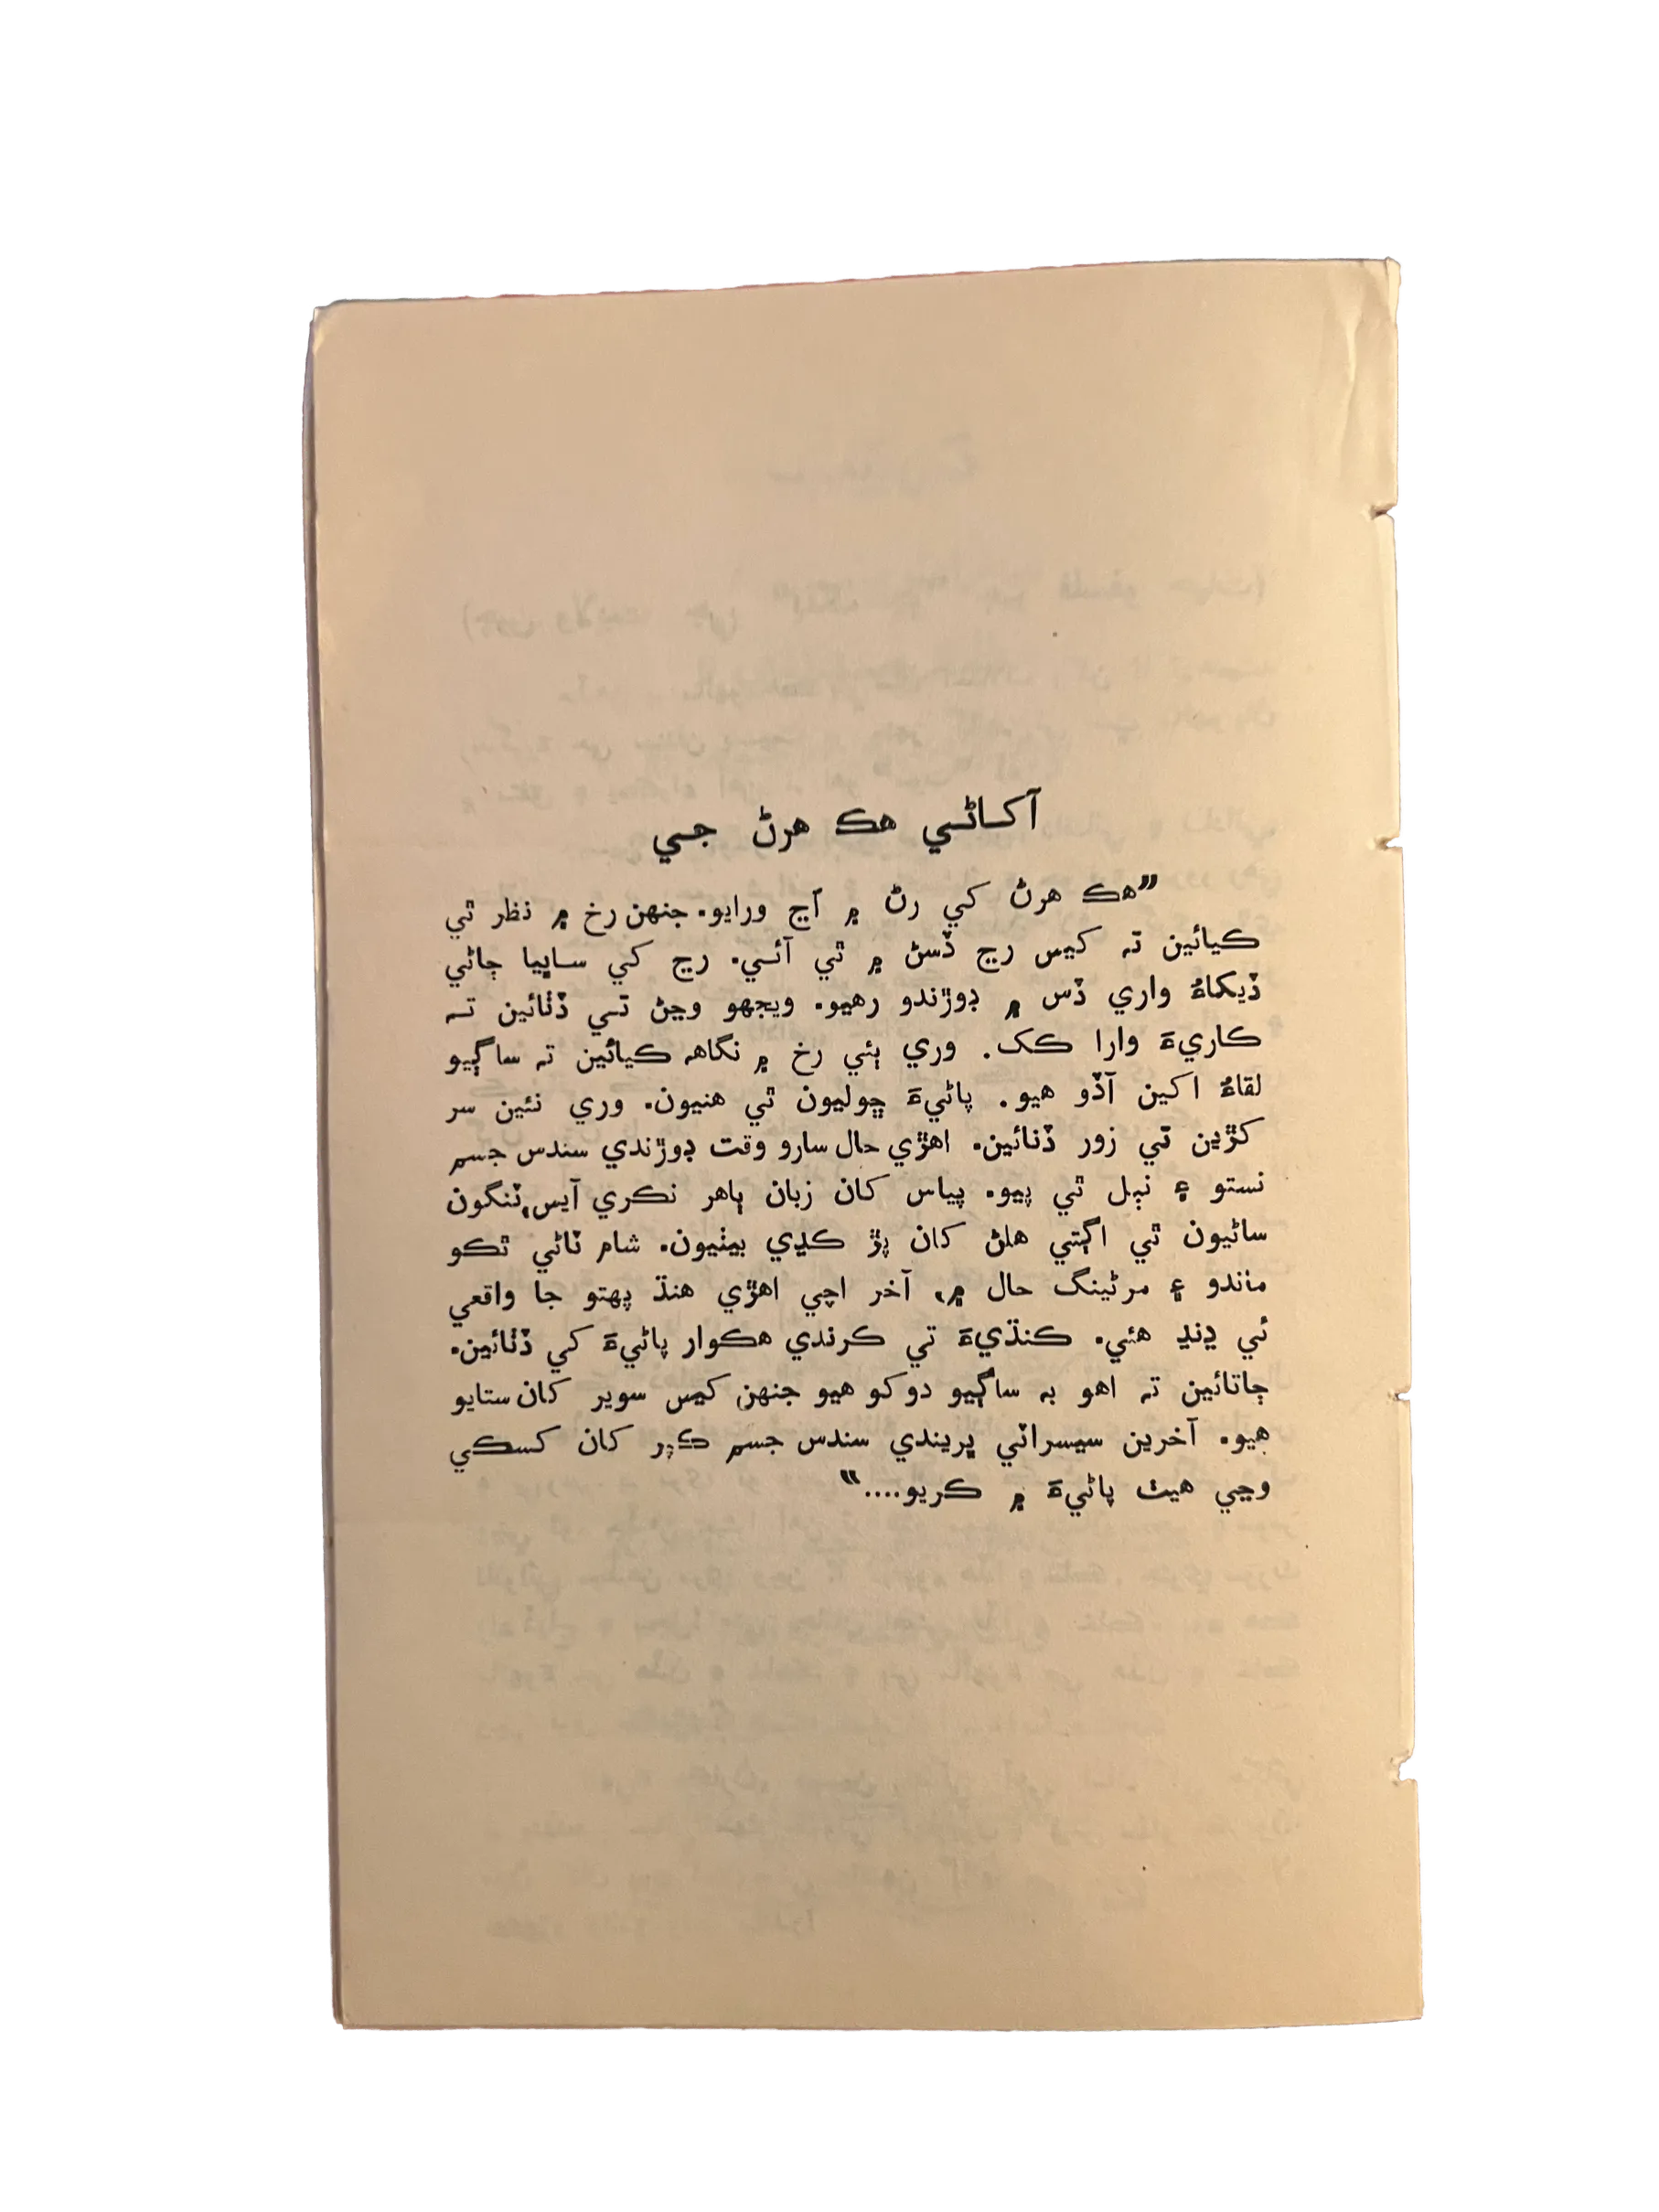 آکاڻي هڪ هرڻ جي
”هڪ هرڻ کي رڻ ۾ اڃ ورايو. جنهن رخ ۾ نظر ٿي
ڪيائين تہ کيس رڃ ڏسڻ ۾ ٿي آئي. رڃ کي ساڀيا ڄاڻي
ڏيکاءُ واري ڏس ۾ ڊوڙندو رهيو. ويجهو وڃڻ تي ڏٺائين تہ
ڪاريءَ وارا ڪک. وري ٻئي رخ ۾ نگاهہ ڪيائين تہ ساڳيو
لقاءُ اکين آڏو هيو. پاڻيءَ ڇوليون ٿي هنيون. وري نئين سر
کڙين تي زور ڏنائين. اهڙي حال سارو وقت ڊوڙندي سندس جسم
نستو ۽ نٻل ٿي پيو. پياس کان زبان ٻاهر نڪري آيس، ٽنگون
ساڻيون ٿي اڳتي هلڻ کان پڙ ڪڍي بيٺيون. شام ٽاڻي ٿڪو
ماندو ۽ مرڻينگ حال ۾، آخر اچي اهڙي هنڌ پهتو جا واقعي
ئي ڍنڍ هئي. ڪنڌيءَ تي ڪرندي هڪوار پاڻيءَ کي ڏٺائين.
ڄاتائين تہ اهو بہ ساڳيو دوکو هيو جنهن کيس سوير کان ستايو
هيو. آخرين سيسراٽي ڀريندي سندس جسم ڪپر کان کسڪي
وڃي هيٺ پاڻيءَ ۾ ڪريو....“